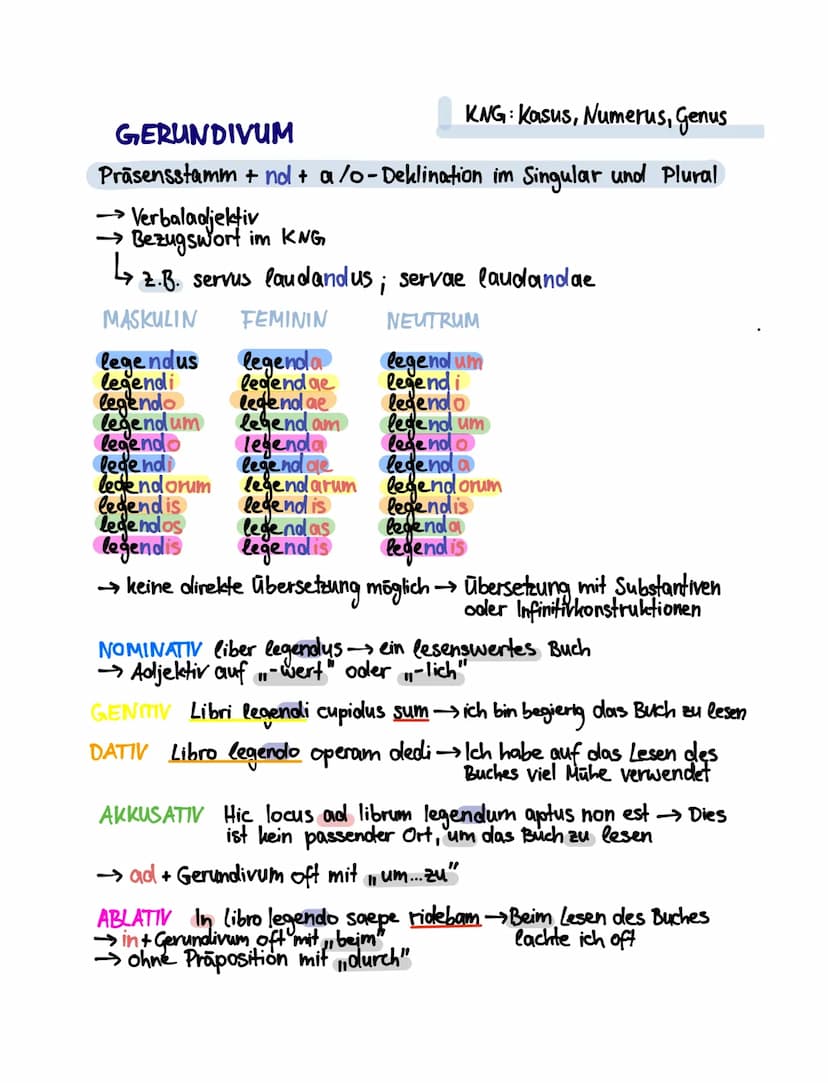 KNG: Kasus, Numerus, Genus
GERUNDIVUM
Präsensstamm + nd + a/o-Deklination im Singular und Plural
→ Verbaladjektiv
→ Bezugswort im KNG
↳ z.B. servus laudandus; servae laudandae
MASKULIN FEMININ NEUTRUM
legendus legenda legendum
legendi legendae legendi
legendo legendae legendo
legendum legendam legendum
legendo legenda legendo
legendi legendae legenda
legendorum legendarum legendorum
legendis legendis legendis
legendos legendas legenda
legendis legendis legendis
→ keine direkte Übersetzung möglich → Übersetzung mit Substantiven
oder Infinitivkonstruktionen
NOMINATIV liber legendus → ein lesenswertes Buch
→ Adjektiv auf „-wert" oder „-lich"
GENITIV Libri legendi cupidus sum → ich bin begierig das Buch zu lesen
DATIV Libro legendo operam dedi → Ich habe auf das Lesen des
Buches viel Mühe verwendet
AKKUSATIV Hic locus ad librum legendum aptus non est → Dies
ist kein passender Ort, um das Buch zu lesen
→ ad + Gerundivum oft mit „um...zu"
ABLATIV In libro legendo saepe ridebam → Beim Lesen des Buches
lachte ich oft
→ in + Gerundivum oft mit „beim"
→ ohne Präposition mit „durch"